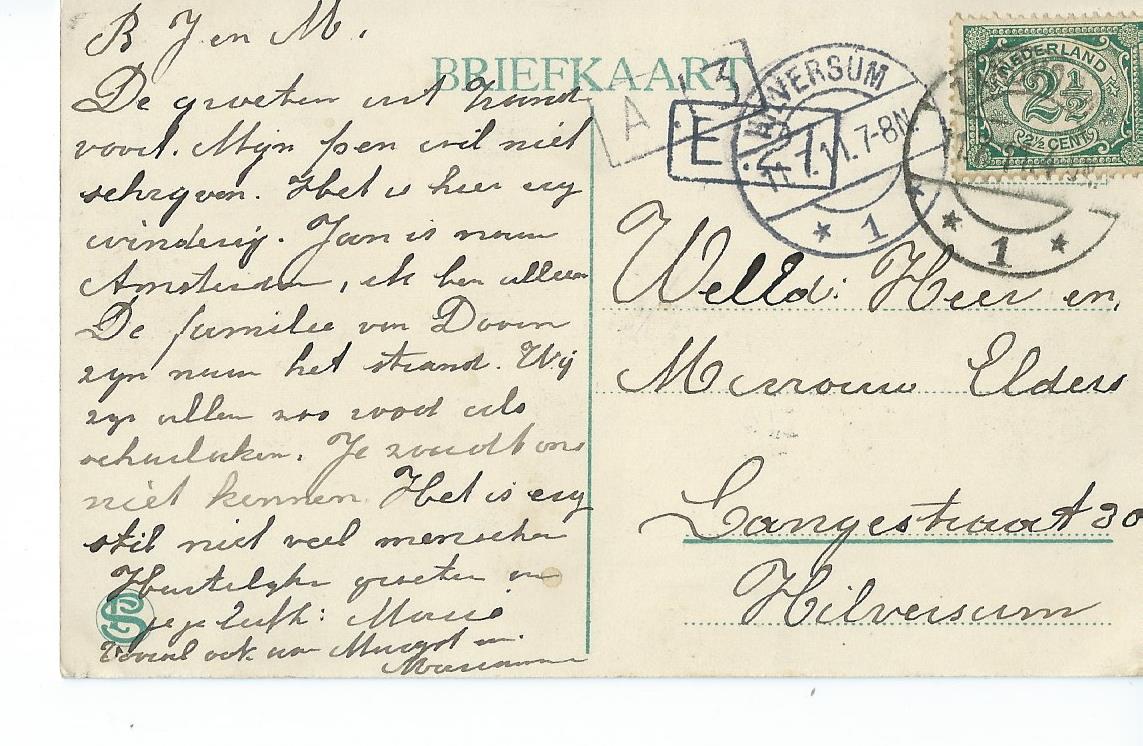 B J en M.
De groeten uit Zand
voort. Mijn pen wil niet
schrijven. Het is hier erg
winderig. Jan is naar
Amsterdam, ik ben alleen
De familie van Doorn
zijn naar het strand. Wij
zijn allen zoo rood als
Je zoudt ons
niet kennen. Het is erg
stil niet veel menschen
Hartelijke groeten van
je je liefh: Marie
Vooral ook van Margot en
Marianne
BRIEFKAART
A. 3
E 27
HILVERSUM
11.7.11.7-8N.
1
1
NEDERLAND
2½
2½ CENT
Welld: Heer en
Mevrouw Elders
Langestraat 30
Hilversum